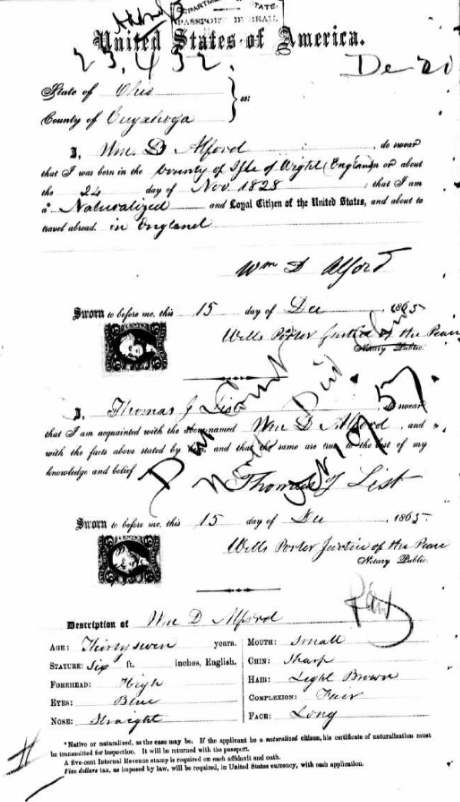 DEPARTMENT OF STATE
PASSPORT BUREAU
United States of America.
23,432.
De 20
State of Ohio
County of Cuyahoga } ss:
I, Wm. D Alford, do swear
that I was born in the County of Isle of Wight (England) on or about
the 24 day of Nov. 1828; that I am
a* Naturalized and Loyal Citizen of the United States, and about to
travel abroad. in England
Wm D Alford
Sworn to before me, this 15 day of Dec 1865
Wells Porter Justice of the Peace
Notary Public.
I, Thomas J List, swear
that I am acquainted with the above-named Wm D Alford, and
with the facts above stated by and that the same are true to the best of my
knowledge and belief
Thomas J List
Sworn to before me, this 15 day of Dec, 1865.
Wells Porter Justice of the Peace
Notary Public.
Description of Wm D Alford
AGE: Thirty seven years.
STATURE: Six ft. inches, English.
FOREHEAD: High
EYES: Blue
NOSE: Straight
MOUTH: Small
CHIN: Sharp
HAIR: Light Brown
COMPLEXION: Fair
FACE: Long
*Native or naturalized, as the case may be. If the applicant be a naturalized citizen, his certificate of naturalization must
be transmitted for inspection. It will be returned with the passport.
A five-cent Internal Revenue stamp is required on each affidavit and oath.
Five dollars tax, as imposed by law, will be required, in United States currency, with each application.